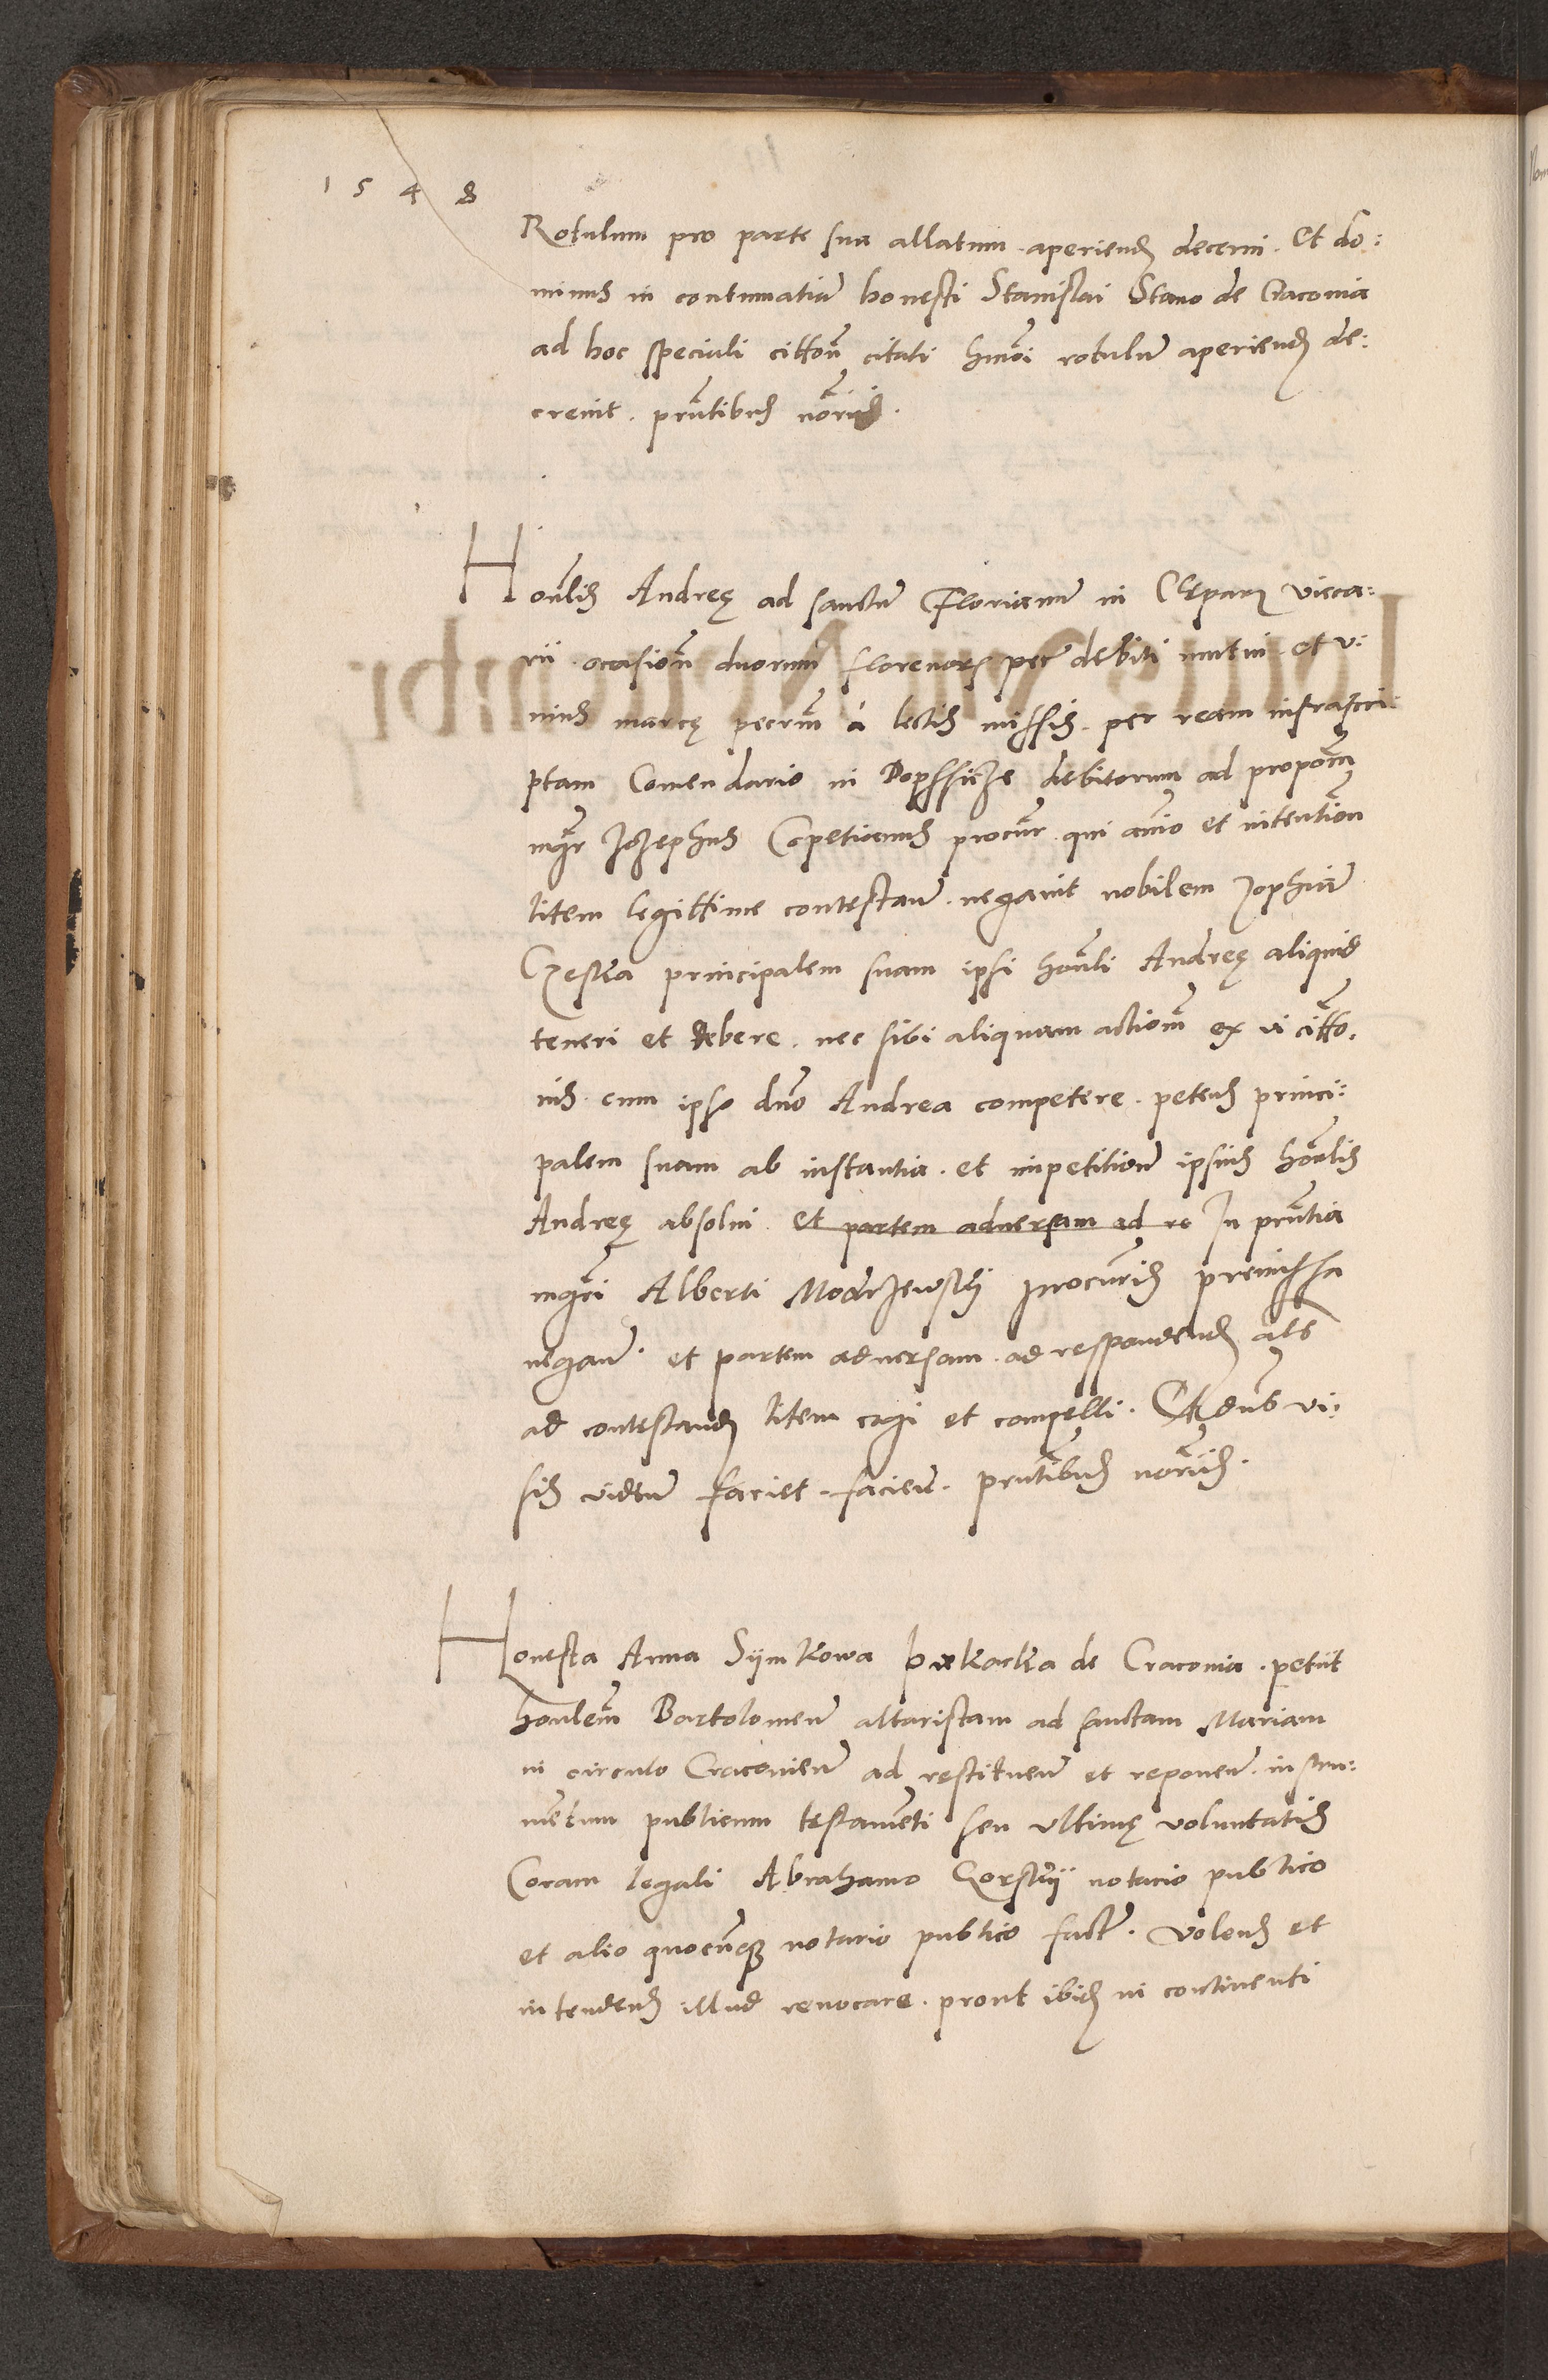 1548
Rotulum pro parte sua allatum aperiend decerni. Et do:
minus in contumatia honesti Stanislai Stano de Cracovia
ad hoc speciali cittōn citati hmōi rotulū aperiend de:
crevit. prntibus nōriis.
Honlis Andreę ad sanctū Florianū in Clepar vicca:
rii ocasionē duorum florenor per debiti mutui et v:
nius marcę pecrm à lectis missis per ream infrascri
ptam Comendario in debitorum ad propōm
mgr Jozephus procūr qui aīo et intentiōn
litem legittime contestan. negavit nobilem Zophiā
principalem suam ipsi honli Andreę aliquid
teneri et debere. nec sibi aliquam actionē ex vi citto.
nis cum ipso dno Andrea competere. petens princi:
palem suam ab instantia et impetitionē ipsius honlis
Andreę absolvi et partem adversam ad re In prntia
mgri Alberti Modrzewskÿ procuris premissa
negan. et partem adversam ad respondend als
ad contestand litem cogi et compelli. Et dns vi:
sis vidēn faciet facien. prntibus nōriis.
Honesta Anna Sÿmkowa piekarka de Cracovia petiit
honlem Bartolomeū altaristam ad sanctam Mariam
in circulo Cracovien ad restituen et reponen instru:
mētum publicum testamēti seu ultimę voluntatis
Coram legali Abrahamo Gorskÿ notario publico
et alio quocūque notario publico fact. volens et
intendens illud revocare. prout ibid in continenti